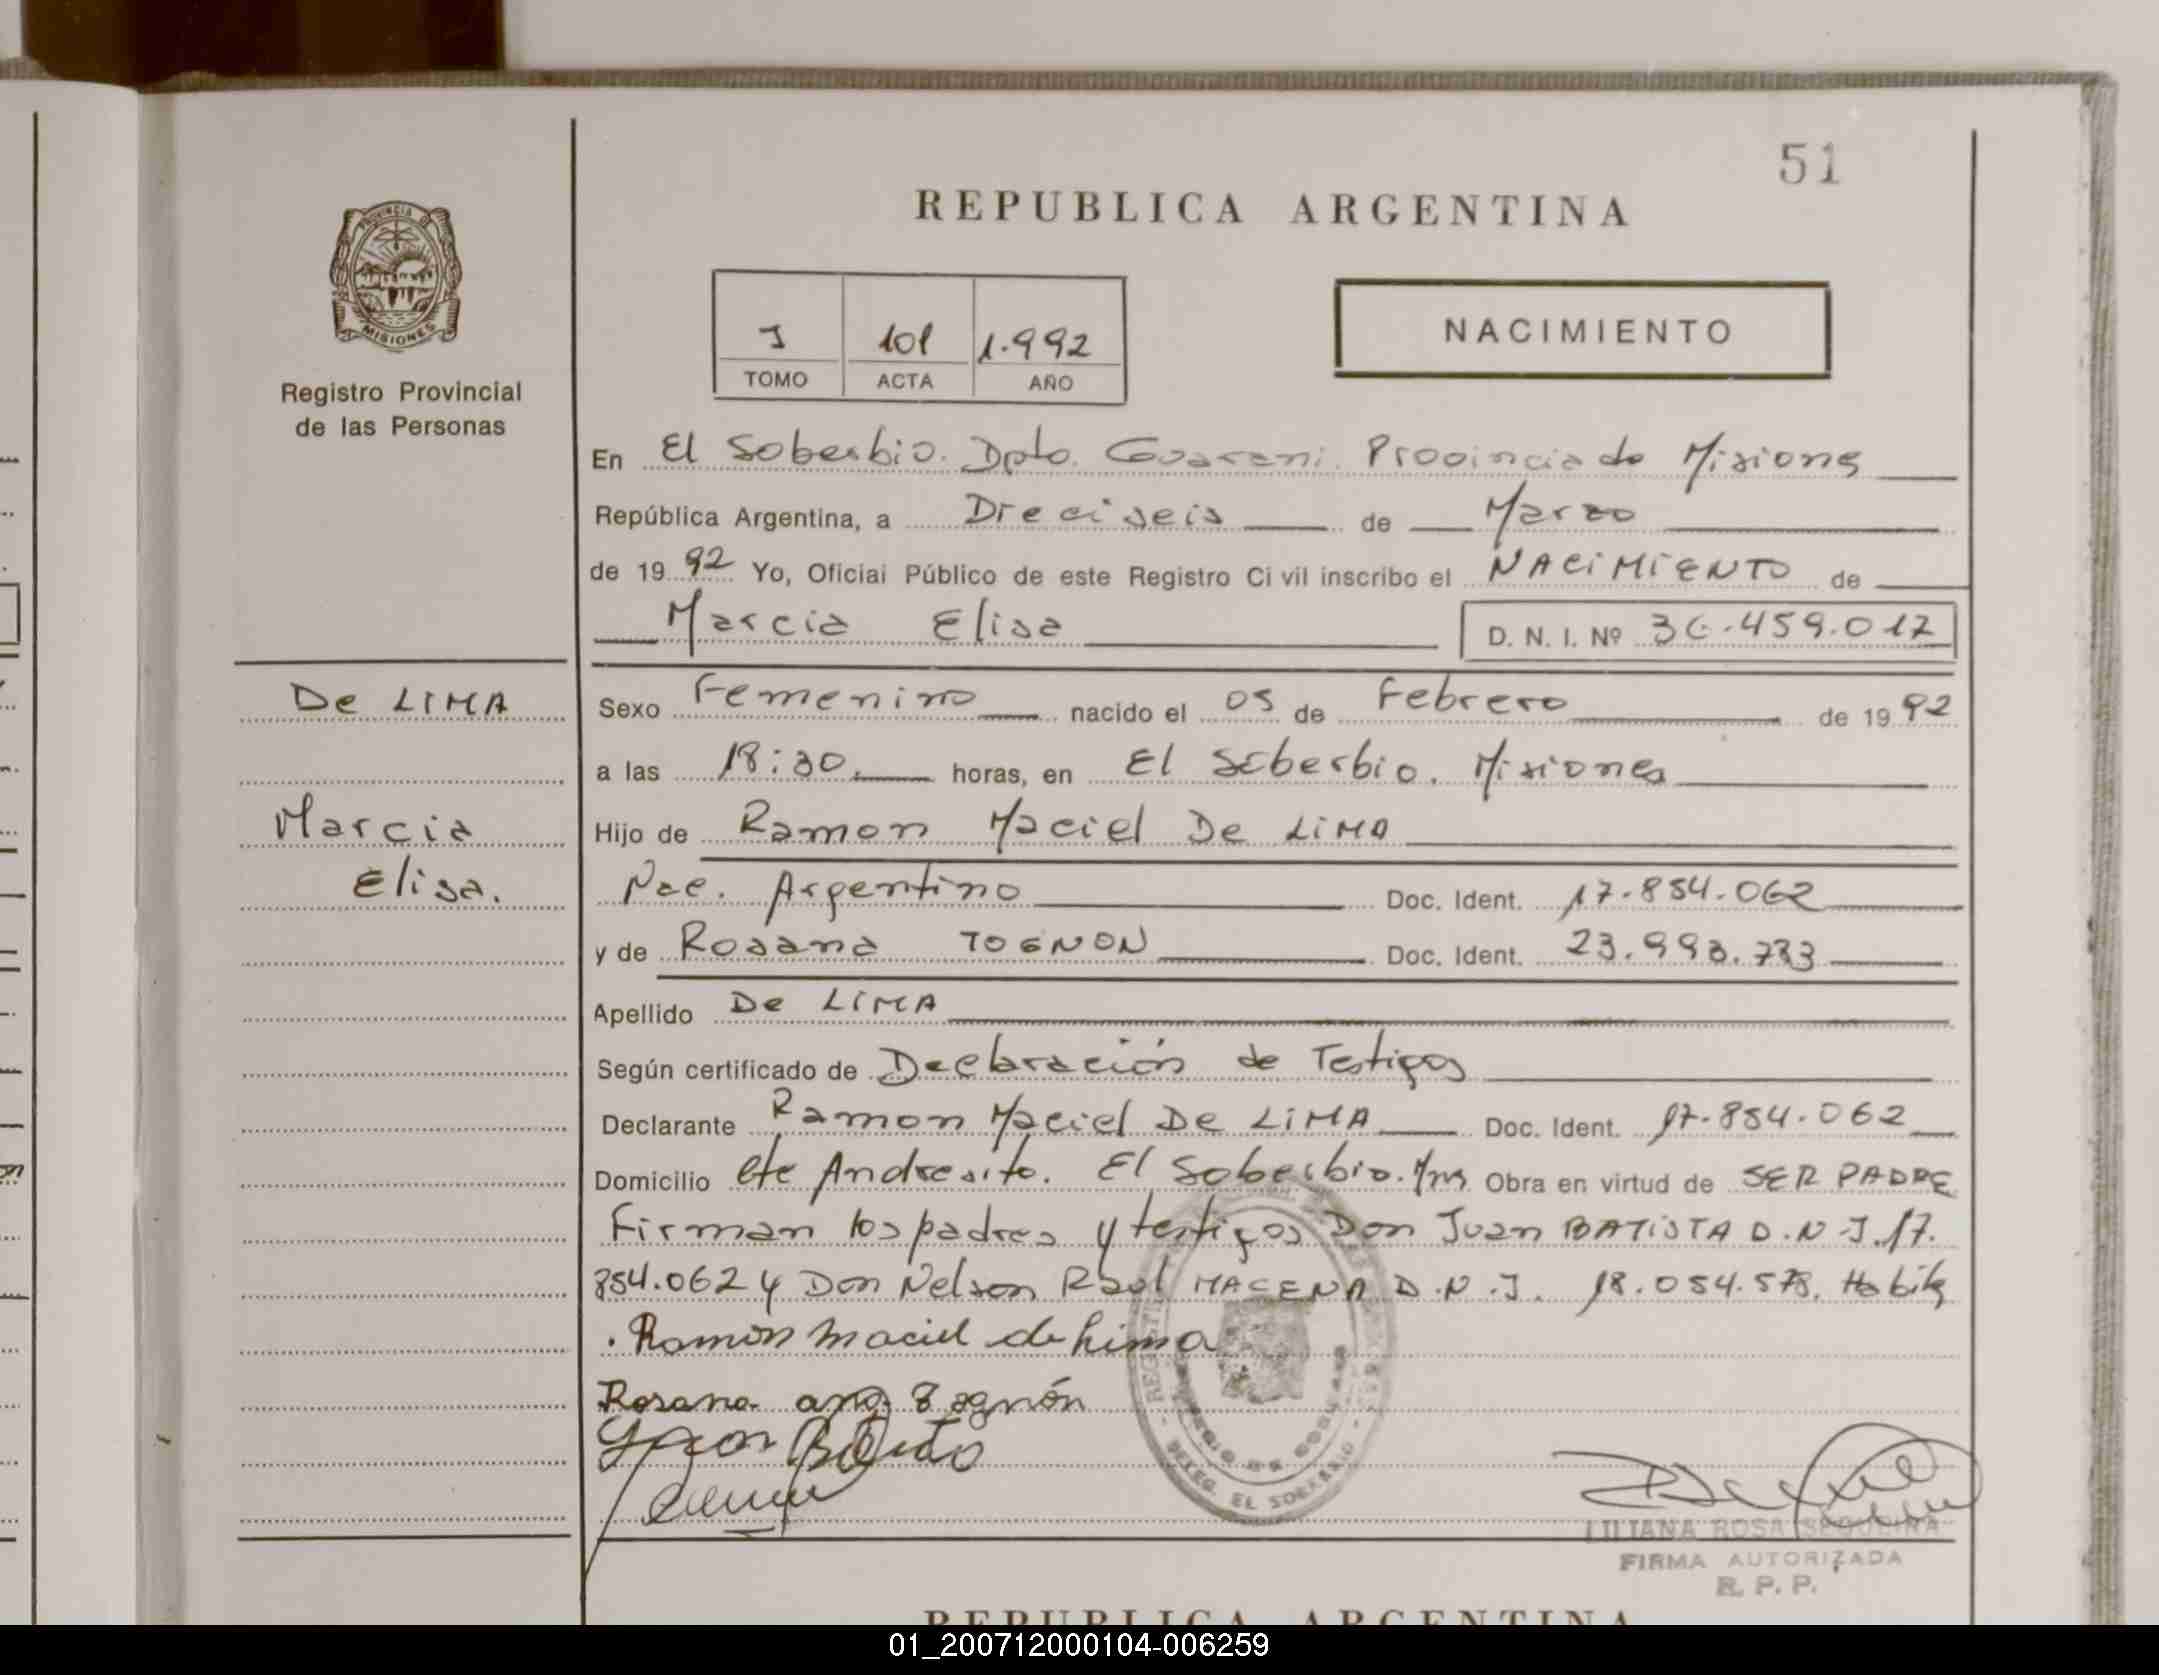 51
REPUBLICA ARGENTINA
PROVINCIA DE
MISIONES
Registro Provincial
de las Personas
I 101 1.992
TOMO ACTA AÑO
NACIMIENTO
En El Soberbio. Dpto. Guarani. Provincia de Misiones
República Argentina, a Dieciseis de Marzo
de 1992 Yo, Oficial Público de este Registro Civil inscribo el NACIMIENTO de
Marcia Elisa D. N. I. Nº 36.459.017
De LIMA
Marcia
Elisa.
Sexo Femenino nacido el 05 de Febrero de 1992
a las 18:30. horas, en El Soberbio. Misiones
Hijo de Ramon Maciel De LiMA
Nac. Argentino Doc. Ident. 17.854.062
y de Rosana TOGNON Doc. Ident. 23.993.733
Apellido De LiMA
Según certificado de Declaración de Testigos
Declarante Ramon Maciel De LiMA Doc. Ident. 17.854.062
Domicilio Andresito. El Soberbio. Mns Obra en virtud de SER PADRE
Firman los padres y testigos Don Juan BATISTA D.N.I. 17.
854.062 y Don Nelson Raul MACENA D.N.I. 18.054.578. Habits
Ramon Maciel de Lima
Rosana ana Tognón
DELEG. EL SOBERBIO
LILIANA ROSA SEQUEIRA
FIRMA AUTORIZADA
R. P. P.
REPUBLICA ARGENTINA
01_200712000104-006259